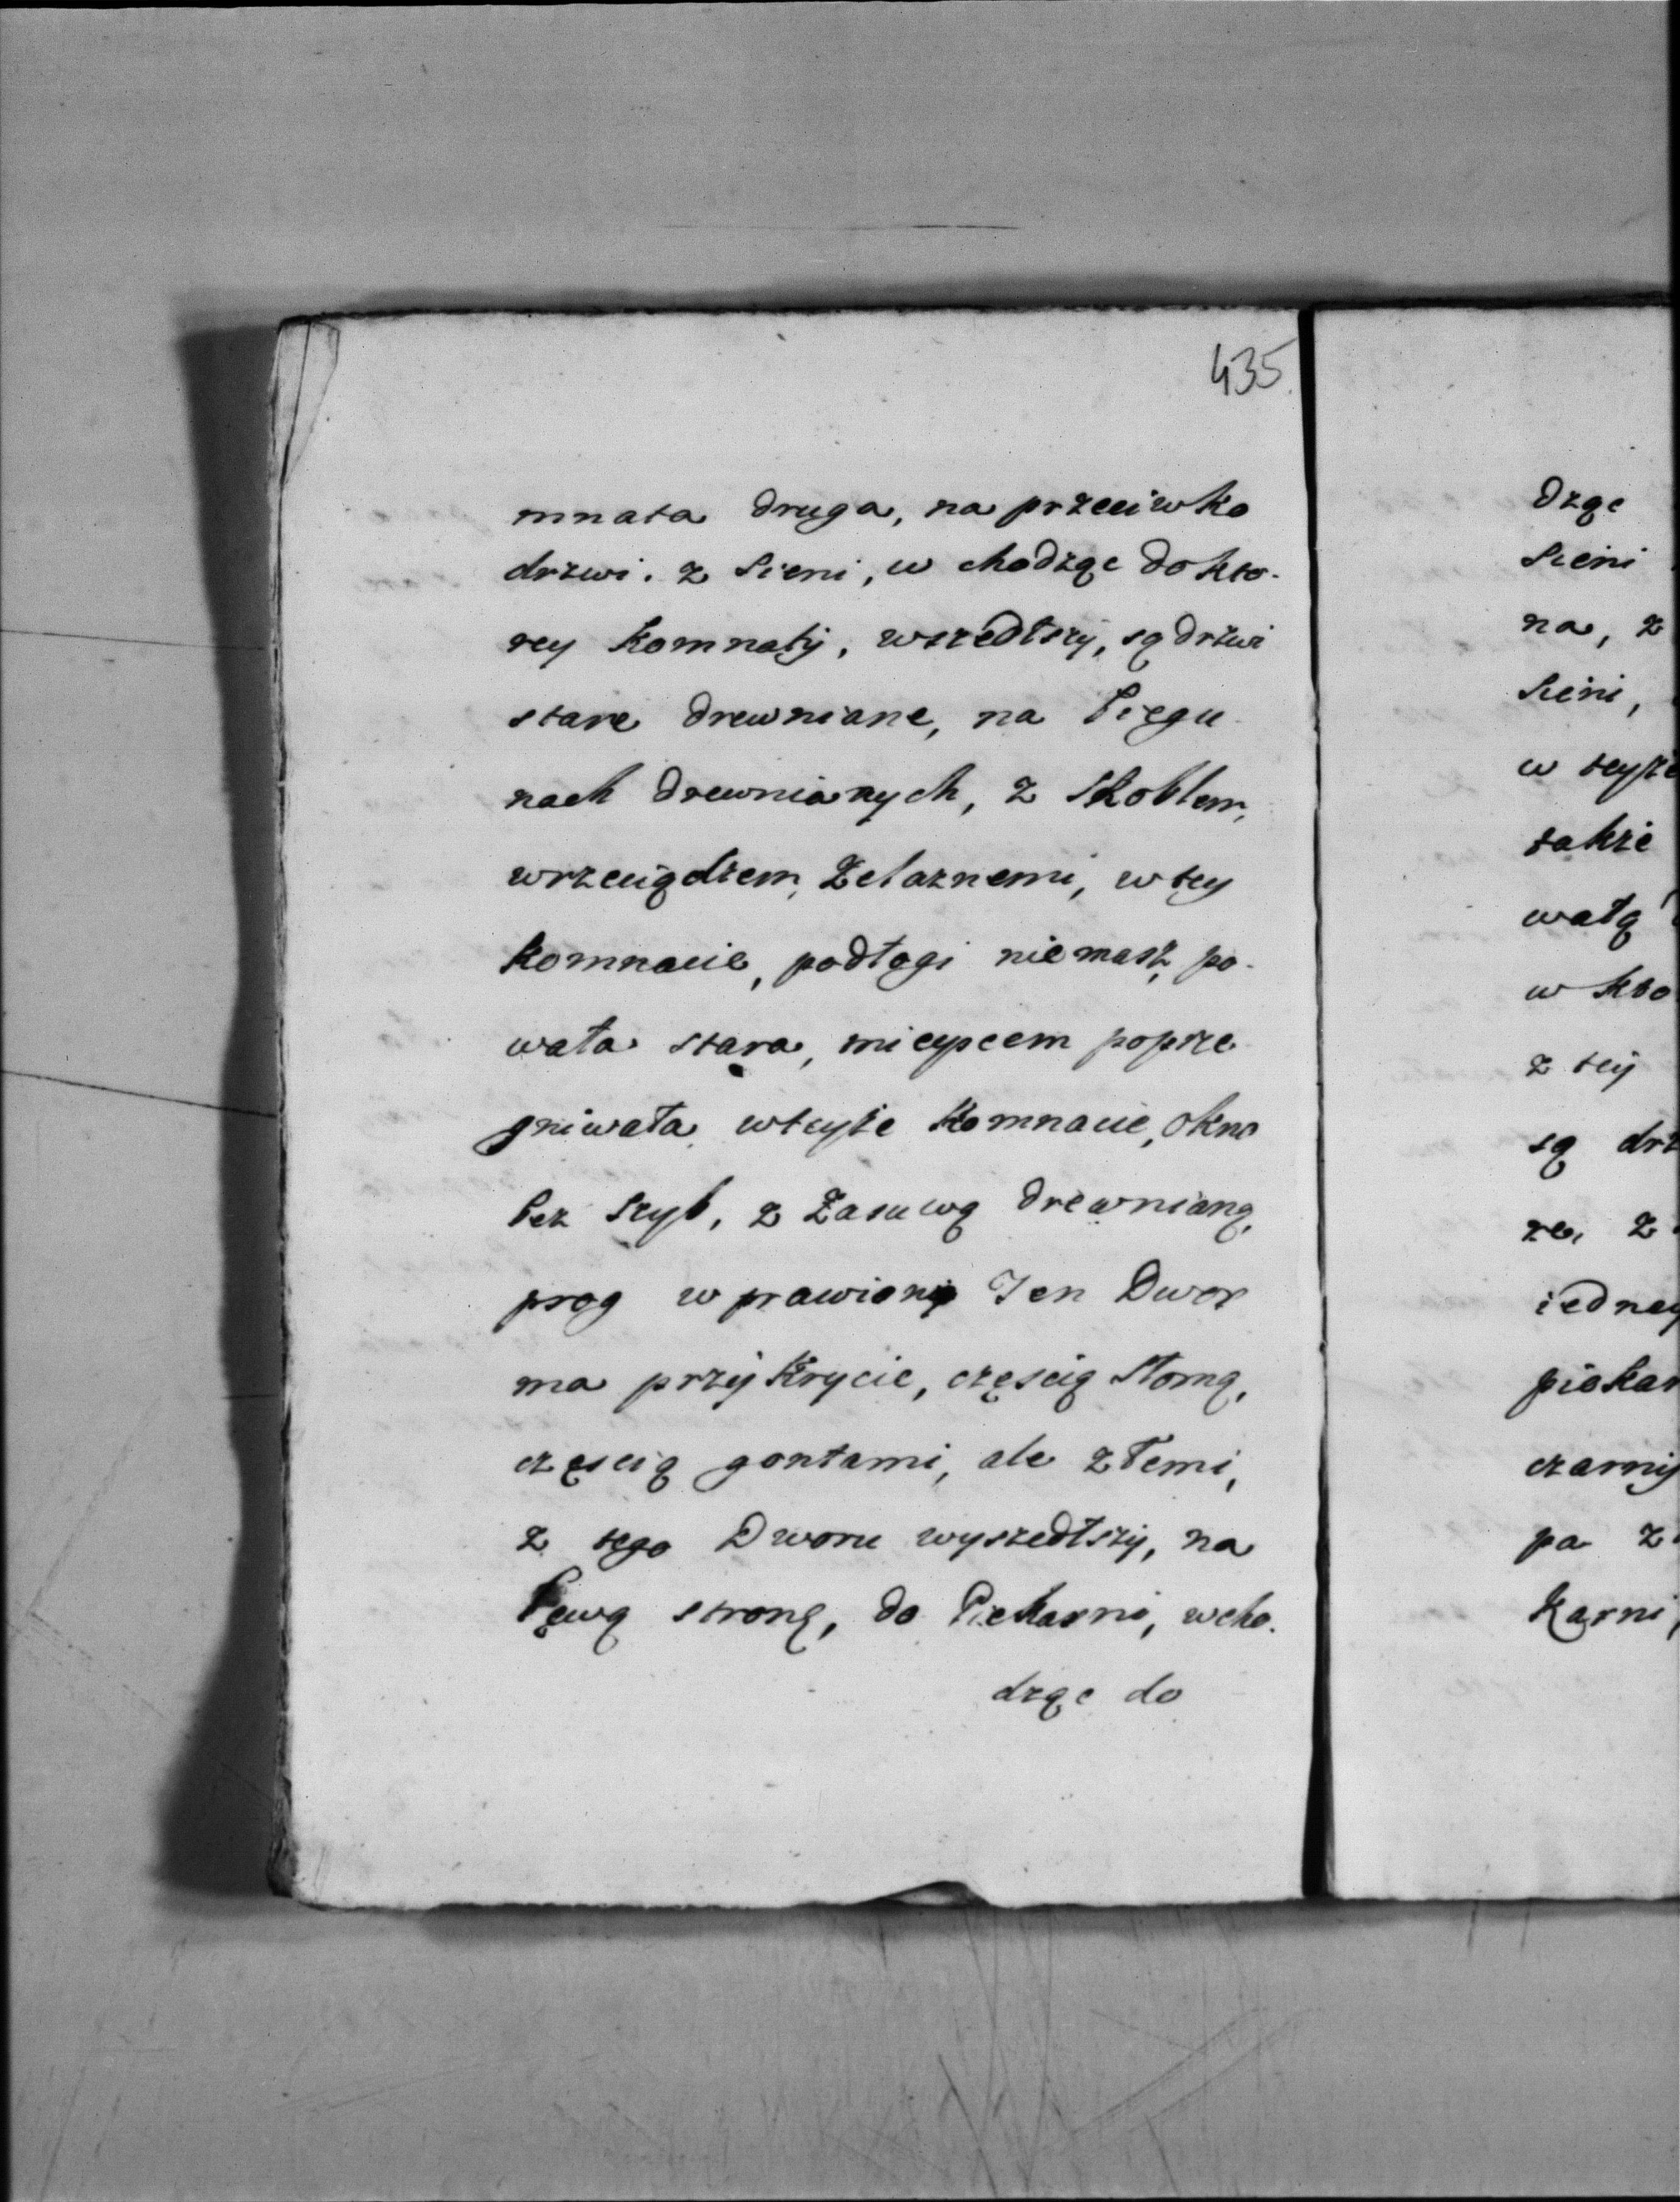 435
mnata druga, na przeciwko
drzwi. z Sieni, w chodząc do kto-
rey Komnaty, wszedłszy, są drzwi
stare drewniane, na biegu
nach drewnianych, z skoblem,
wrzeciądzem, żelaznemi, w tey
komnacie, podłogi niemasz, po-
wała stara, mieyscem poprze
gniwała, wteyże Komnacie, okno
bez szyb, z zasuwą drewnianą,
prog w prawiony Ten Dwor
ma przykrycie, częscią słomą,
częscią gontami, ale złemi,
z tego Dworu wyszedłszy, na
Lewą stronę, do Piekarni, wcho-
dząc do
dząc
Sieni
na, z
Sieni,
w teyże
także
wałą
w kto
z tey
są drz
re, z
iedney
piekar
czarny
pa z
karni,